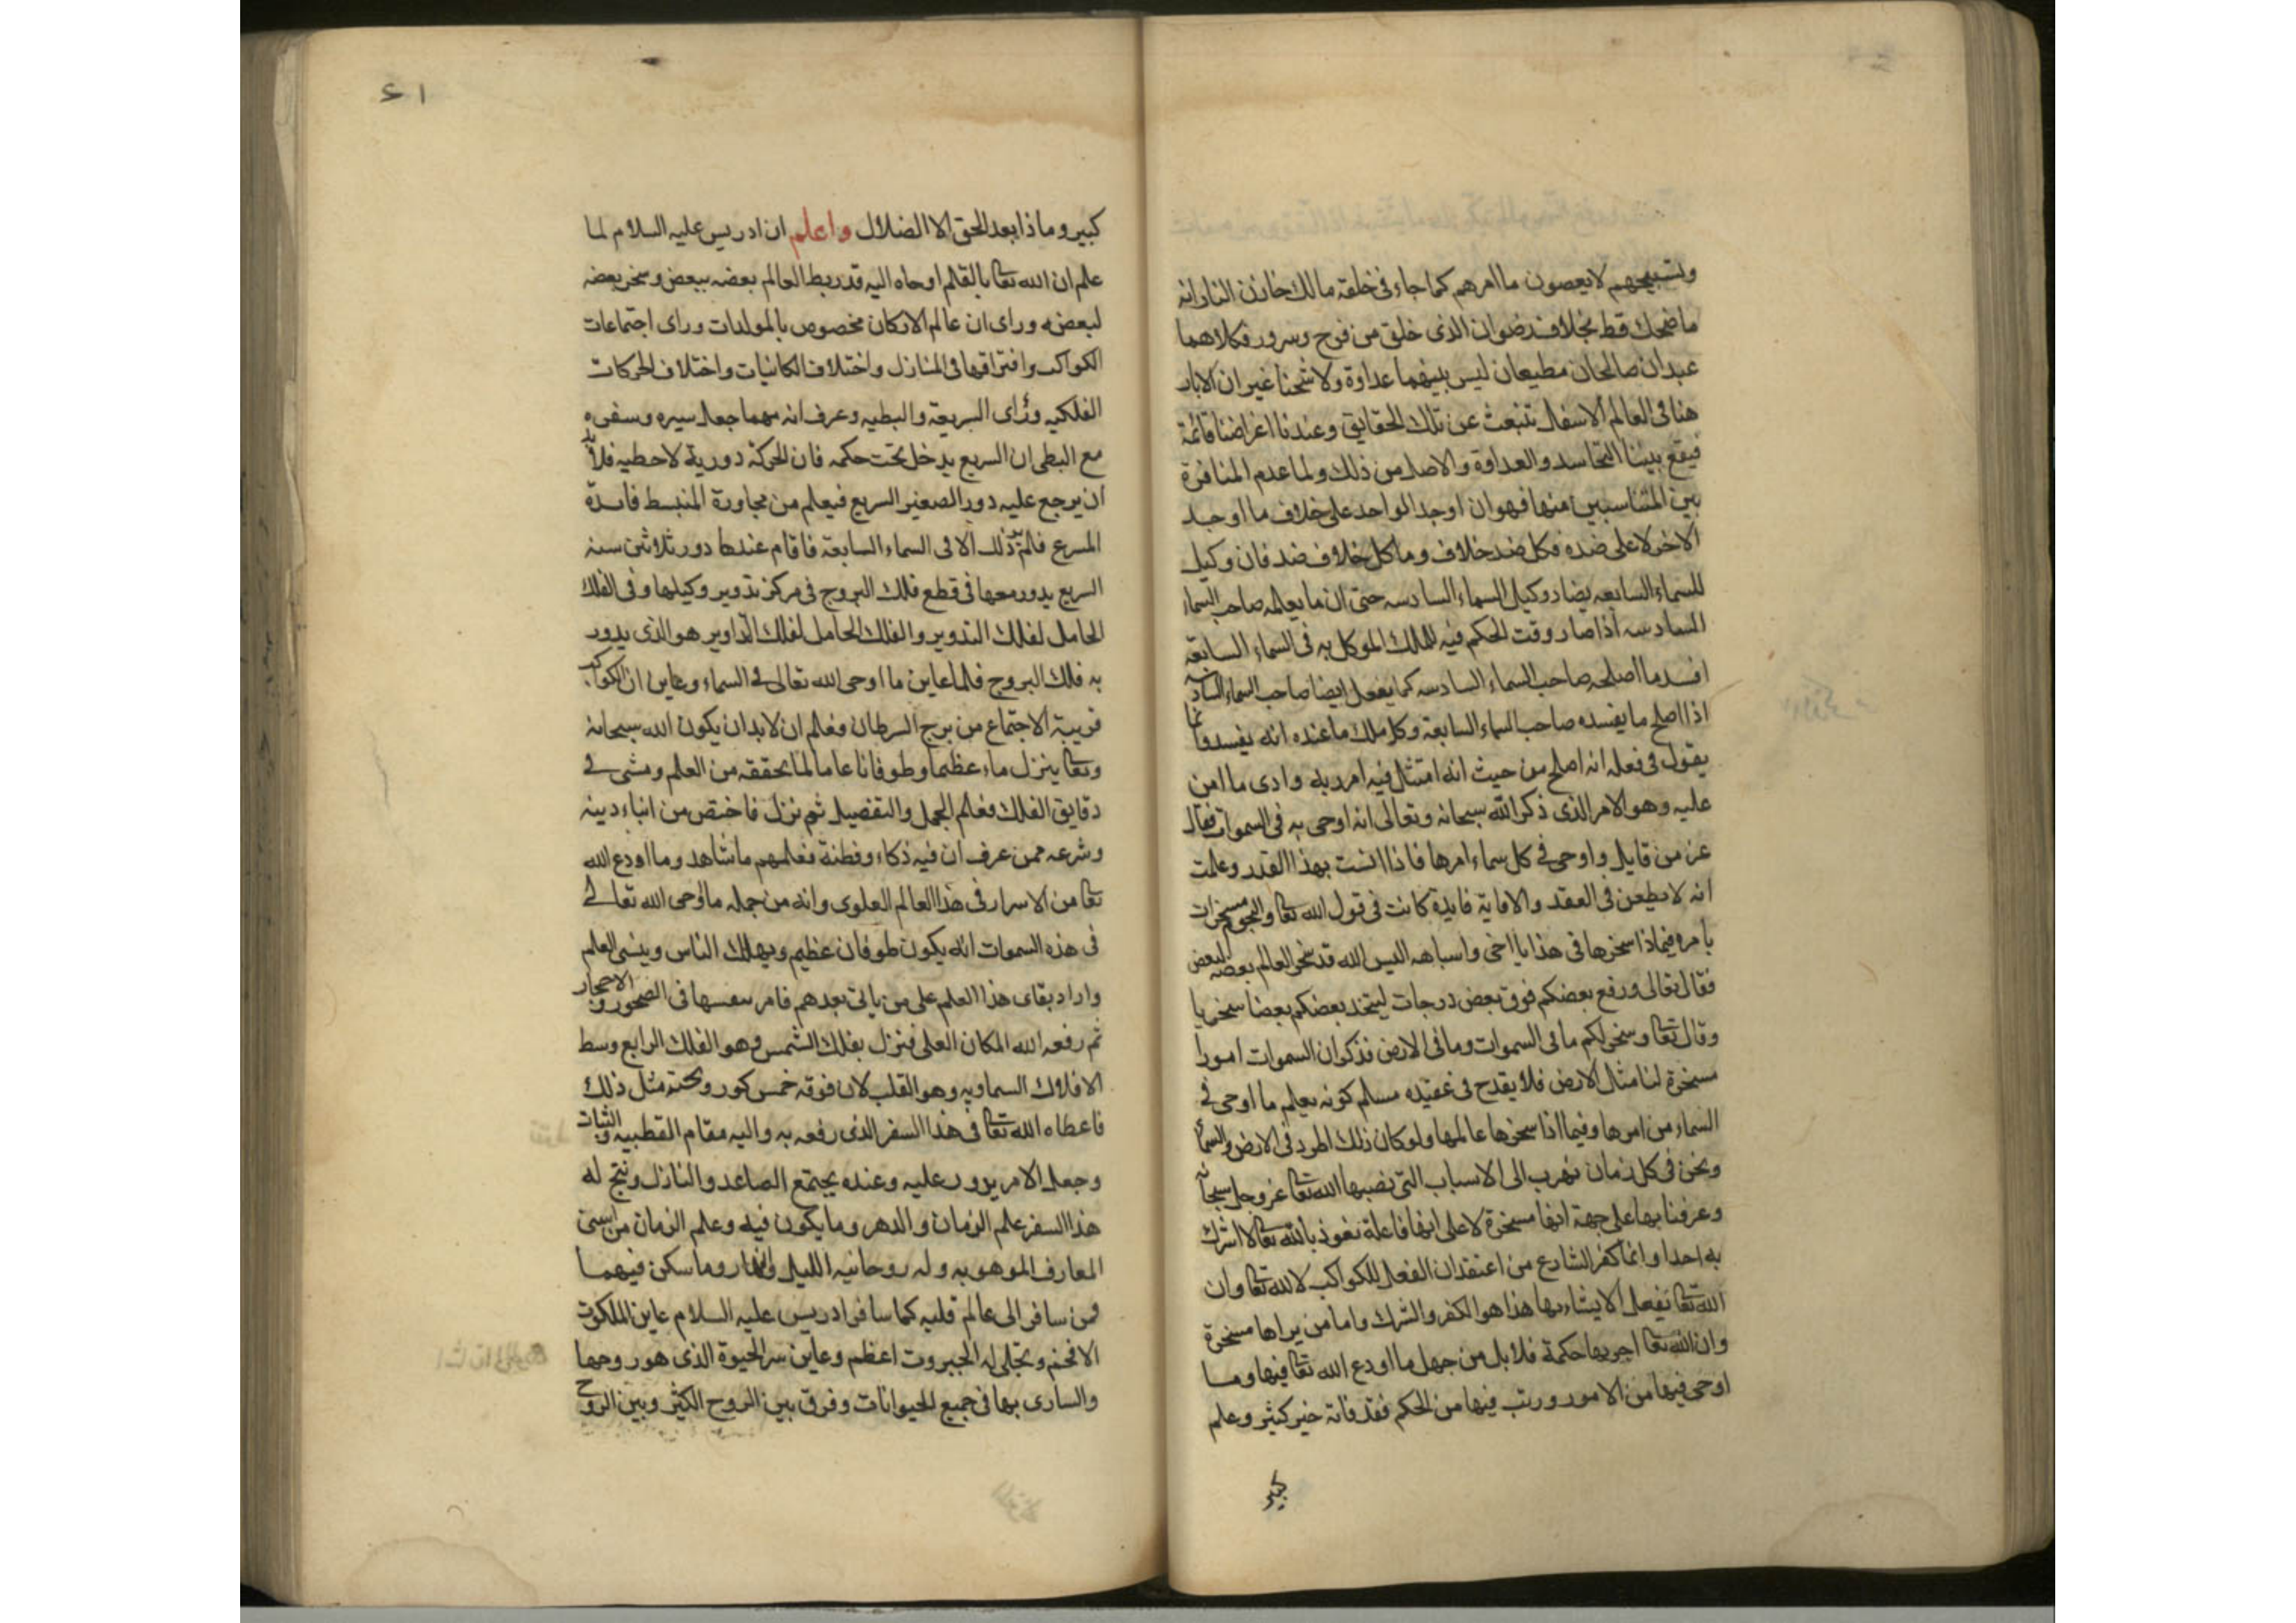 وتسبيحهم لا يعصون ما امرهم كما جاء فى خلقة مالك خازن النار انه
ما ضحك قط بخلاف رضوان الذى خلق من فرح وسرور فكلاهما
عبدان صالحان مطيعان ليس بينهما عداوة ولا شحنا غير ان الاباء
هنا فى العالم الاسفل تنبعث عن تلك الحقايق وعندنا اغراضنا قائمة
فيقع بيننا التحاسد والعداوة والاصل من ذلك ولما عدم المنافرة
بين المتناسبين منها فهو ان اوجد الواحد على خلاف ما اوجد
الاخر لا على ضده فكل ضد خلاف وما كل خلاف ضد فان وكيل
للسماء السابعه يضاد وكيل السماء السادسه حتى ان ما يعلمه صاحب السماء
السادسه اذا صار وقت الحكم فيه للملك الموكل به فى السماء السابعة
افسد ما اصلحه صاحب السماء السادسه كما يفعل ايضا صاحب السماء السادسه
اذا اصلح ما يفسده صاحب السماء السابعة وكل ملك ما عنده انه يفسد وانما
يقول فى فعله انه اصلح من حيث انه امتثل فيه امر ربه وادى ما امن
عليه وهو الامر الذى ذكر الله سبحانه وتعالى انه اوحى به فى السموات فقال
عز من قايل واوحى فى كل سماء امرها فاذا انست بهذا القدر وعلمت
انه لا يطعن فى العقد والا فاية فايدة كانت فى قول الله تعا والنجوم مسخرات
بامره فبماذا سخرها فى هذا يا اخى واسباهه اليس الله قد سخر العالم بعضه لبعض
فقال تعالى ورفع بعضكم فوق بعض درجات ليتخذ بعضكم بعضا سخريا
وقال تعا وسخر لكم ما فى السموات وما فى الارض فذكر ان السموات امورا
مسخرة لنا مثال الارض فلا يقدح فى عقيده مسلم كونه يعلم ما اوحى فى
السماء من امرها وفيما اذا سخرها عالمها ولو كان ذلك اطرد فى الارض والسماء
ونحن فى كل زمان نهرب الى الاسباب التى نصبها الله تعا عز وجل سبحانه
وعرفنا بها على جهة انها مسخرة لا على انها فاعلة نعوذ بالله تعا لا اشرك
به احدا وانما كفر الشارع من اعتقد ان الفعل للكواكب لا لله تعا وان
الله تعا يفعل الاشياء بها هذا هو الكفر والشرك واما من يراها مسخرة
وان الله تعا اجرىها حكمة فلا بل من جهل ما اودع الله تعا فيها وما
اوحى فيها من الامور ورتب فيها من الحكم فقد فاته خير كثير وعلم
كبير
٤١
كبير وما ذا بعد الحق الا الضلال واعلم ان ادريس عليه السلام لما
علم ان الله تعا بالقلم اوحاه اليه قد ربط العالم بعضه ببعض وسخر بعضه
لبعضه وراى ان عالم الاركان مخصوص بالمولدات وراى اجتماعات
الكواكب وافتراقها فى المنازل واختلاف الكائيات واختلاف الحركات
الفلكيه وراى السريعة والبطيه وعرف انه مهما جعل سيره وسفره
مع البطى ان السريع يدخل تحت حكمه فان الحركة دورية لا خطيه فلا بد
ان يرجع عليه دور الصغير السريع فيعلم من مجاورة المنبسط فايدة
المسرع فلم ير ذلك الا فى السماء السابعة فاقام عندها دور ثلاثين سنه
السريع يدور معها فى قطع فلك البروج فى مركز تدوير وكيلها وفى الفلك
الحامل لفلك التدوير والفلك الحامل لفلك التداوير هو الذى يدور
به فلك البروج فلما عاين ما اوحى الله تعالى فى السماء وعاين ان الكواكب
قريبة الاجتماع من برج السرطان فعلم ان لا بد ان يكون الله سبحانه
وتعا ينزل ماء عظيما وطوفانا عاما لما تحققه من العلم ومشى فى
دقايق الفلك فعلم الجمل والتفصيل ثم نزل فاختص من ابناء دينه
وشرعه ممن عرف ان فيه ذكاء وفطنة فعلمهم ما شاهد وما اودع الله
تعا من الاسرار فى هذا العالم العلوى وانه من جمله ما اوحى الله تعالى
فى هذه السموات انه يكون طوفان عظيم ويهلك الناس وينسى العلم
واراد بقاى هذا العلم على من ياتى بعدهم فامر بنقشها فى الصخور والاحجار
ثم رفعه الله المكان العلى فنزل بفلك الشمس وهو الفلك الرابع وسط
الافلاك السماويه وهو القلب لان فوقه خمس كور وتحته مثل ذلك
فاعطاه الله تعا فى هذا السفر الذى رفعه به واليه مقام القطبيه والثبات
وجعل الامر يدور عليه وعنده يجتمع الصاعد والنازل ونتج له
هذا السفر علم الزمان والدهر وما يكون فيه وعلم الزمان من اسنى
المعارف الموهوبه وله روحانيه الليل والنهار وما سكن فيهما
فمن سافر الى عالم قلبه كما سافر ادريس عليه السلام عاين الملكوت
الافخم وتجلى له الجبروت اعظم وعاين سر الحيوة الذى هو روحها
والسارى بها فى جميع الحيوانات وفرق بين الروح الكثير وبين الروح